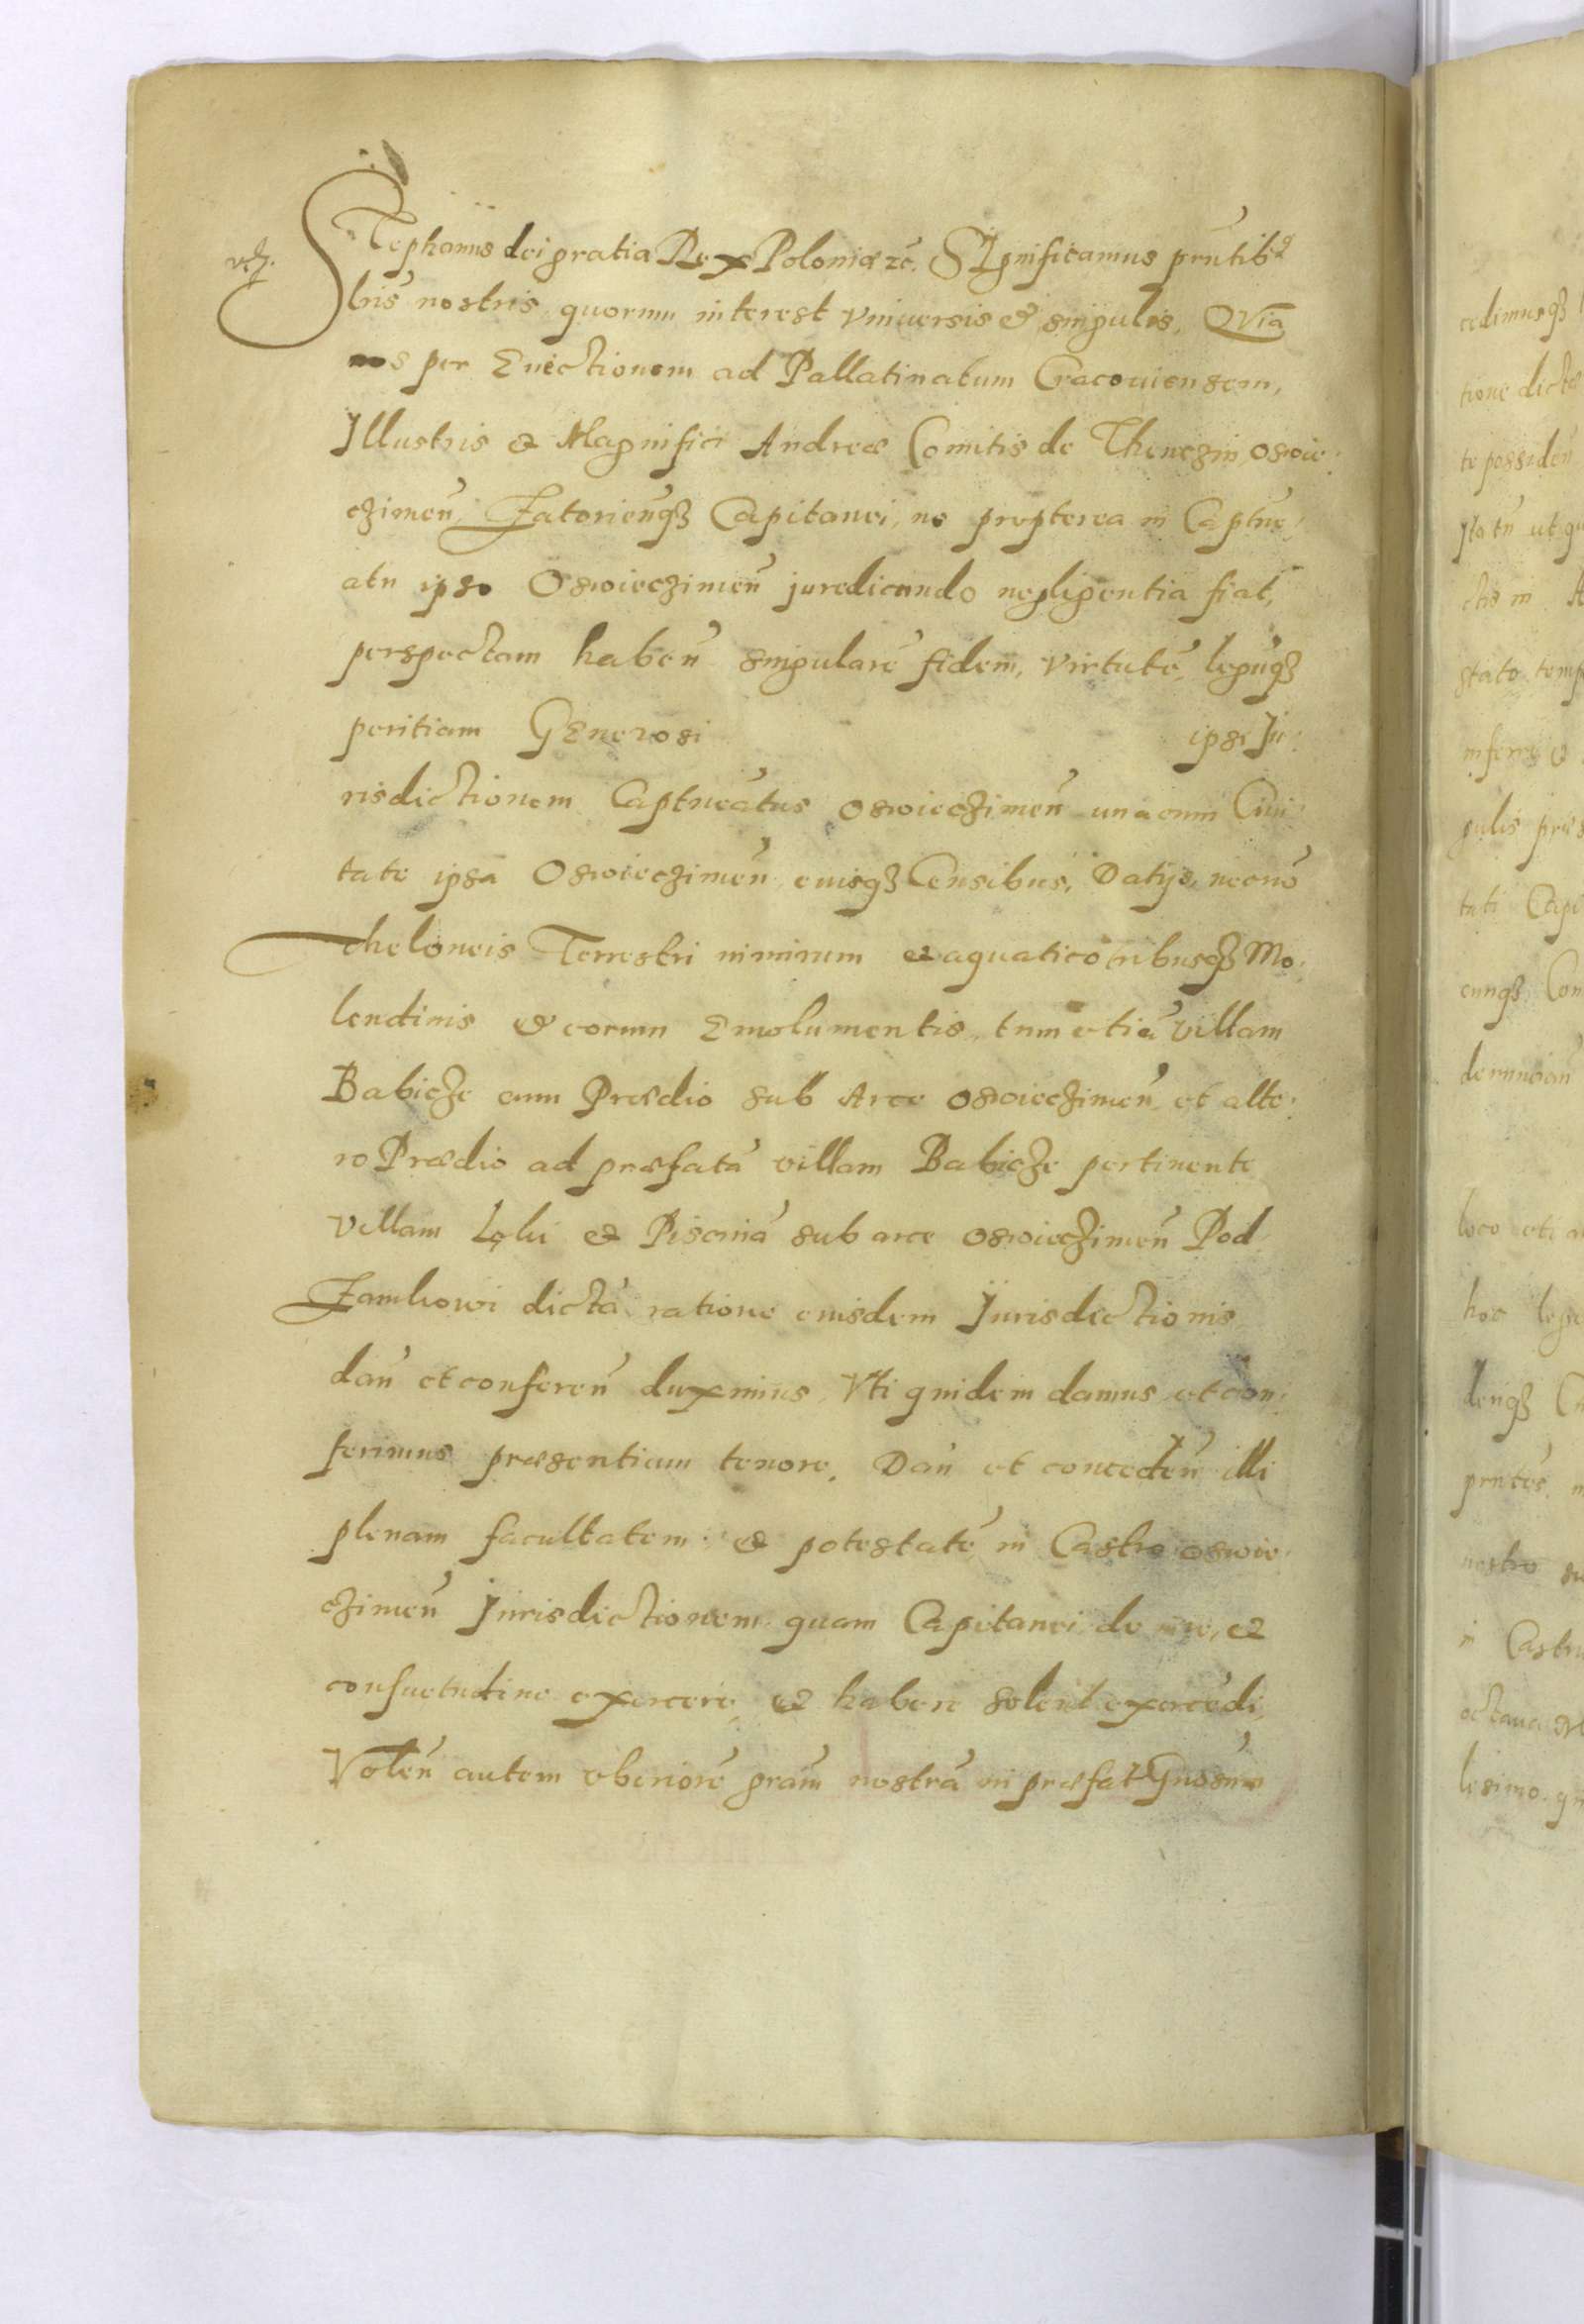 STephanus dei gratia Rex Poloniæ zc̃. SIgnificamus pñtib9
lris̃ nostris quorum interest vniuersis & singulis, QVia
nos per Euectionem ad Pallatinatum Cracouiensem,
Illustris & Magnifici Andreæ Comitis de Thenczin, oswie:
czimeñ, Zatorieñqȝ Capitanei, ne propterea in Captne:
atu ipso Oswieczimeñ juredicundo negligentia fiat,
perspectam habeñ singularẽ fidem, virtutẽ, legũqȝ
peritiam GEnerosi ipsi Ju:
risdictionem Captneãtus oswieczimeñ unacum Ciui:
tate ipsa Oswieczimeñ, eiusqȝ Censibus, Datijs, necnõ
theloneis Terrestri nimirum & aquatico tribusqȝ Mo:
lendinis & eorum Emolumentis, tum etiã villam
Babicze cum Prædio sub Arce oswieczimeñ et alte:
ro Prædio ad præfatã villam Babicze pertinente
villam Lęki & Piscinã sub arce oswieczimeñ Pod
Zamkowi dictã ratione eiusdem Jurisdictionis
dañ et confereñ duximus, Vti quidem damus et con:
ferimus præsentium tenore. Dañ et concedeñ illi
plenam facultatem & potestatẽ in Castro oswie:
czimeñ Jurisdictionem quam Capitanei de iure, &
consuetudine exercere, & habere solent exercẽdi,
Voleñ autem vberiorẽ grãm nostrã in præfat Gnõsum
cedimusqȝ
tione dictæ
te possideñ
Ita tñ ut qu
ctis in
stato temp
inferre &
gulis præs
tuti Capi
cunqȝ Con
denunciañ
loco eti
hoc lege
denqȝ
pñtes
nostro su
in Castr
octaua M
lesimo qu